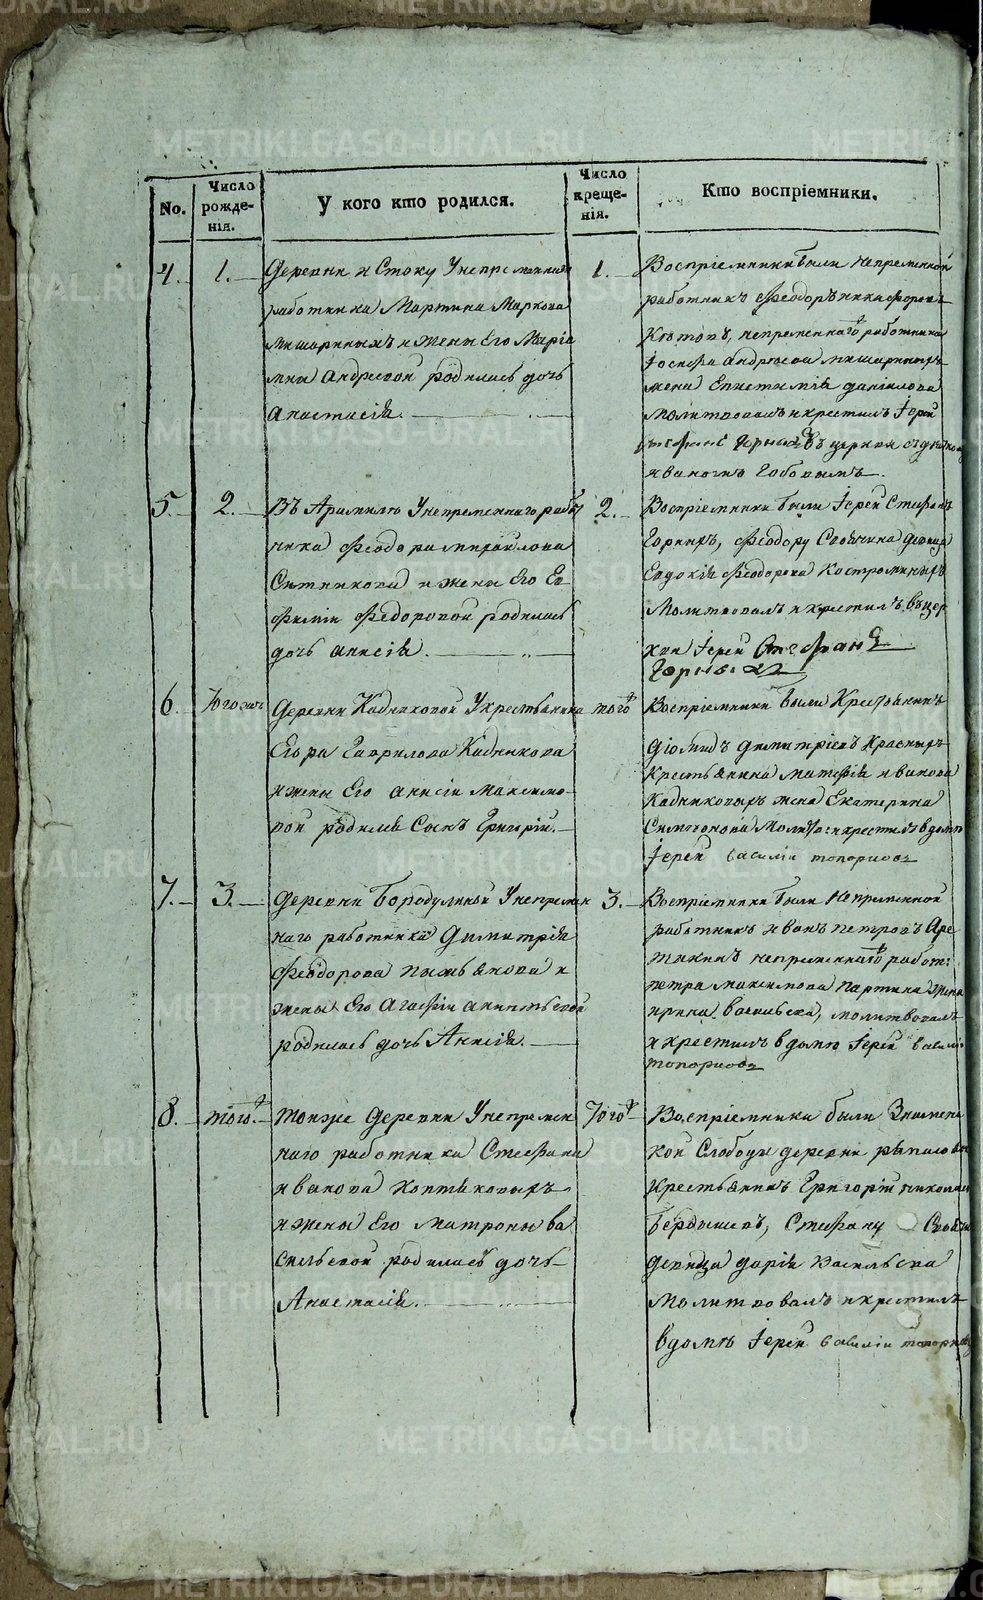 METRIKI.GASO-URAL.RU
No.
Число рожде-нія.
У кого кто родился.
Число креще-нія.
Кто воспріемники.
4. 1. Деревни Истоку У непременнаго
работника Мартина Маркова
Мишариныхъ и жены Его Марiа
мны Андреевой родилась дочь
Анастасія.
1. Воспріемники были непременной
работникъ Феодоръ Никифоровъ
непременнаго работника
Іосифа Андреева Мишариныхъ
жена Епистимія Данилова
Молитвовалъ и крестилъ Іерей
Стефанъ Горныхъ въ церкви
5. 2. Въ Арамилѣ У непременнаго работ
ника Феодора Михайлова
Ситникова и жены Его Ев
фиміи Федоровой родилась
дочь Анисія.
2. Воспріемники были Іерей Стефанъ
Горныхъ, Феодору девица
Евдокія Феодорова Костроминыхъ
Молитвовалъ и крестилъ въ цер
кви Іерей Стефанъ
Горныхъ
6. Деревни Кадниковой У крестьянина
Егора Гаврилова Кадникова
и жены Его Анисіи Максимо-
вой родился Сынъ Григорій.
того Воспріемники были Крестьянинъ
Діомидъ Димитріевъ Красныхъ
Крестьянина Матфія Иванова
Кадниковыхъ жена Екатерина
Симеонова Молитв: и крестилъ в домѣ
Іерей Василіи Топорковъ
7. 3. Деревни Бородулиной У непремен
наго работника Димитрія
Феодорова Пьянкова и
жены Его Агафіи
родилась дочь Анисія.
3. Воспріемники были Непременной
работникъ Иванъ Петровъ
непременнаго работ:
Петра Максимова Партина жена
Ирина Васильева, молитвовалъ
и крестилъ в домѣ Іерей Василіи
Топорковъ
8. того. Тойже Деревни У непремен
наго работника Стефана
Иванова
и жены Его Матроны Ва
сильевой родилась дочь
Анастасія.
того Воспріемники были Знамен
кой Слободы деревни
крестьянинъ Григорій Николаев
Бердышевъ, Стефану
девица Дарія Васильева
Молитвовалъ и крестилъ
в домѣ Іерей Василіи Топорков